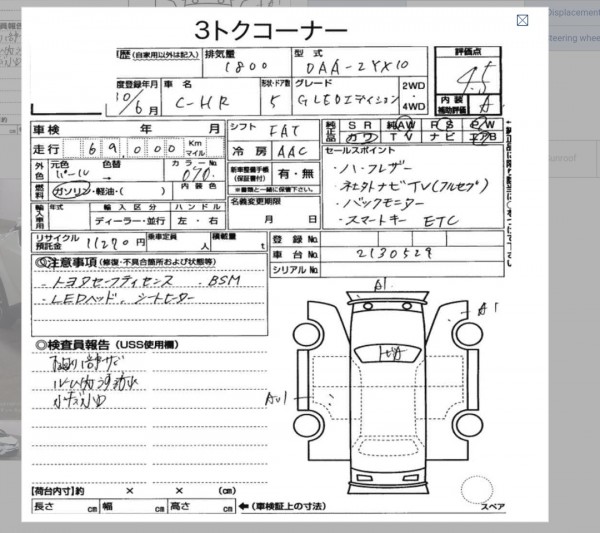 3トクコーナー
歴 (自家用以外は記入) 排気量 1800 型式 DAA-ZYX10 評価点 4.5
度登録年月 10/6月 車名 C-HR 形状・ドア数 5 グレード G LEDエディション 2WD・4WD 内装補助評価 A
車検 年 月 シフト FAT 純正品 SR AW PS PW
カワ TV ナビ
走行 69,000 Km マイル 冷房 AAC セールスポイント
外色 元色 パール 色替 → カラーNo. 070 新車整備手帳(保証書付) 有・無
※書類と一緒に保管下さい。
・ハーフレザー
・社外ナビTV(フルセグ)
・バックモニター
・スマートキー ETC
燃料 ガソリン・軽油・( ) 内装色 名義変更期限 月 日
輸入車用 年式 輸入区分 ハンドル
ディーラー・並行 左・右
リサイクル預託金 11270円 乗車定員 人 積載量 t 登録No.
車台No. 2130529
シリアルNo.
◎注意事項 (修復・不具合箇所および状態等)
・トヨタセーフティセンス .BSM
・LEDヘッド、シートヒーター
◎検査員報告 (USS使用欄)
小キズ 小凹
A1
A1
【荷台内寸】約 × × (cm)
長さ cm 幅 cm 高さ cm ←(車検証上の寸法)
スペア
Displacement